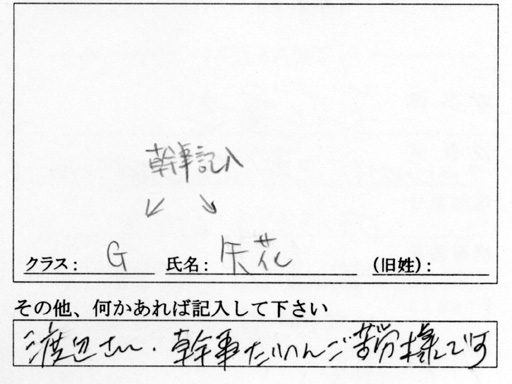 幹事記入
クラス: G 氏名: 矢花 (旧姓):
その他、何かあれば記入して下さい
渡辺さん、幹事たいへんご苦労様です